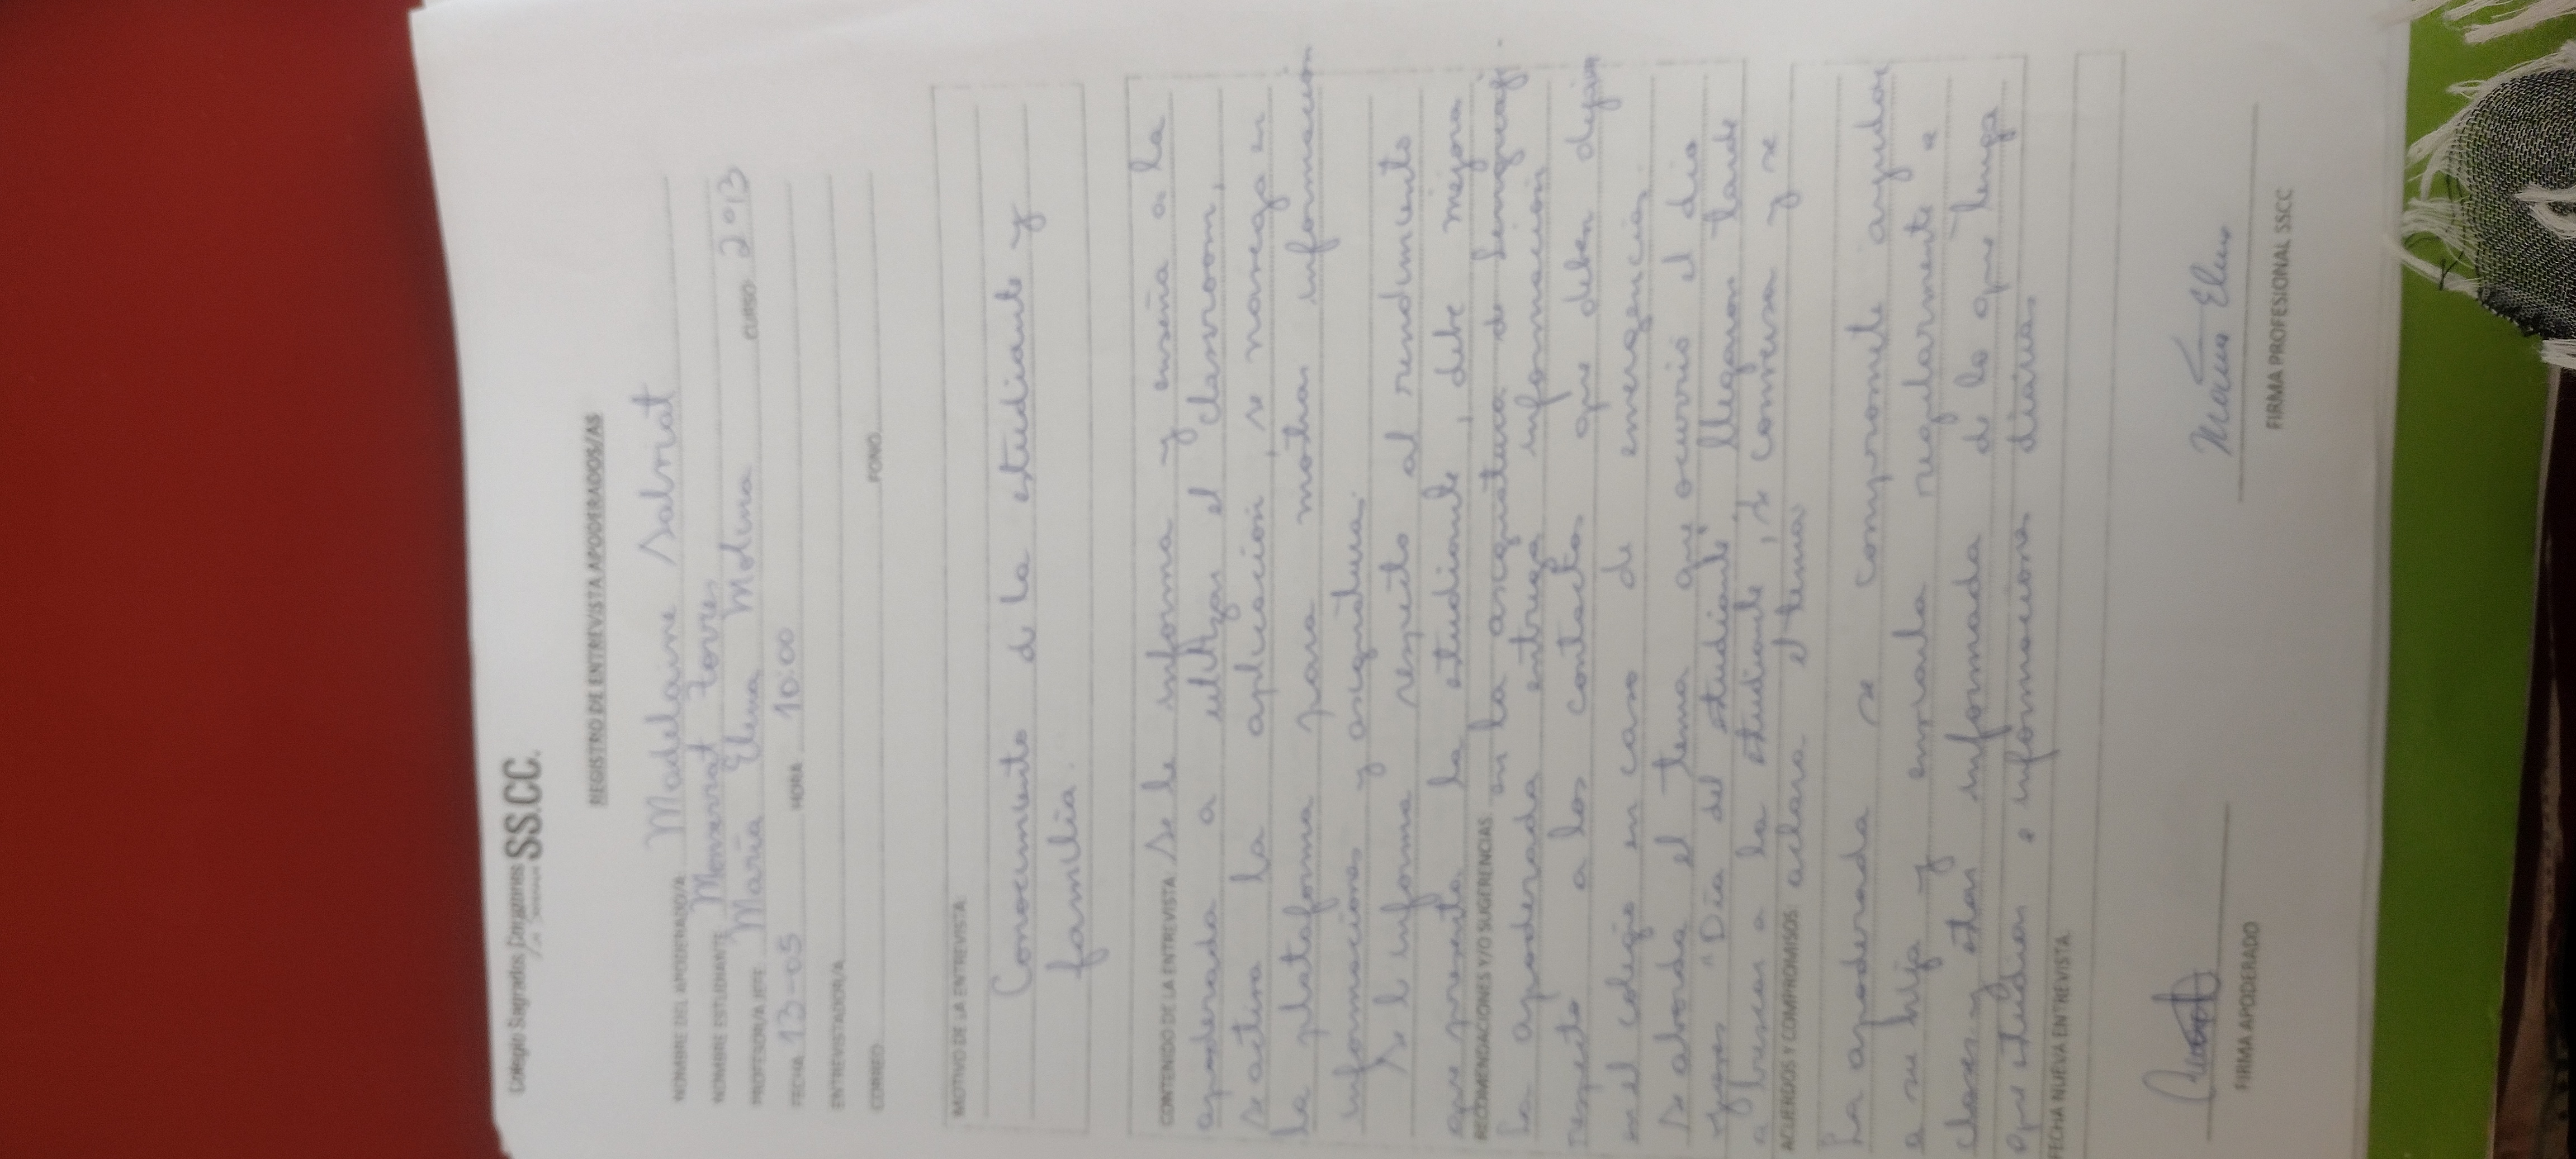 Colegio Sagrados Corazones SS.CC.
REGISTRO DE ENTREVISTA APODERADOS/AS
NOMBRE DEL APODERADO/A Madelaine Salvat
NOMBRE ESTUDIANTE Monserrat Torres
PROFESOR/A JEFE María Elena Molina CURSO 2º B
FECHA 13-05 HORA 10:00
ENTREVISTADOR/A
CORREO FONO
MOTIVO DE LA ENTREVISTA
Conocimiento de la estudiante y
familia.
CONTENIDO DE LA ENTREVISTA Se le informa y enseña a la
apoderada a utilizar el classroom,
se activa la aplicación, se navega en
la plataforma para mostrar información
informaciones y asignatura.
Se le informa respecto al rendimiento
que presenta la estudiante, debe mejorar
RECOMENDACIONES Y/O SUGERENCIAS en la asignatura de lenguaje.
La apoderada entrega información
respecto a los contactos que deben dejar
en el colegio en caso de emergencias.
Se aborda el tema que ocurrió el día
"Día del estudiante" llegaron tarde
a buscar a la estudiante, se conversa y se
ACUERDOS Y COMPROMISOS aclara el tema
La apoderada se compromete ayudar
a su hija y enviarla regularmente a
clases y estar informada de lo que tenga
que estudiar e informaciones diarias
FECHA NUEVA ENTREVISTA
FIRMA APODERADO
María Elena
FIRMA PROFESIONAL SSCC